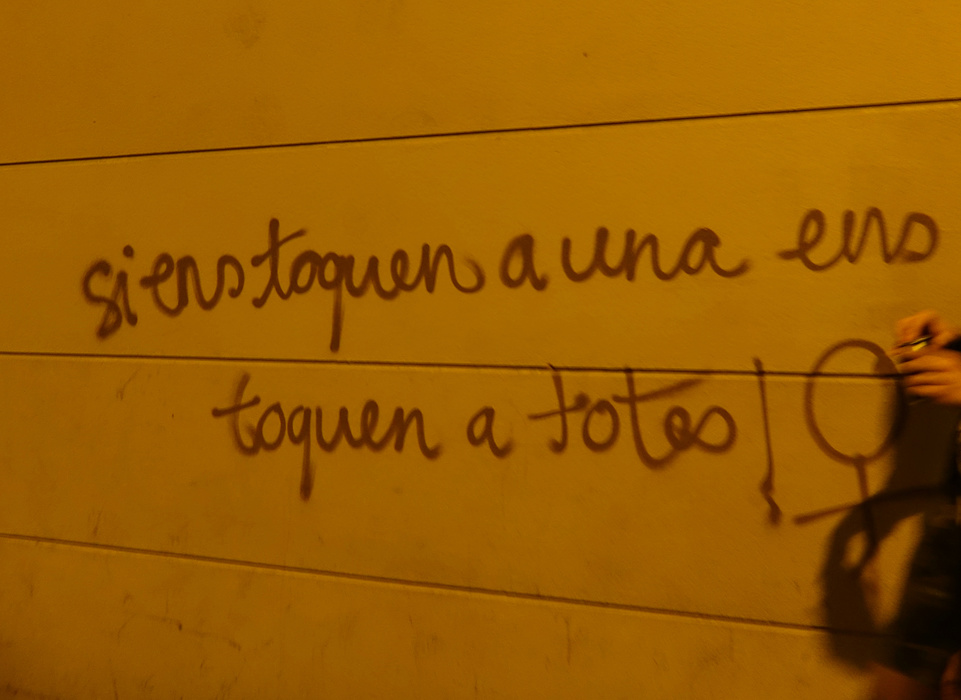 si ens toquen a una ens
toquen a totes!